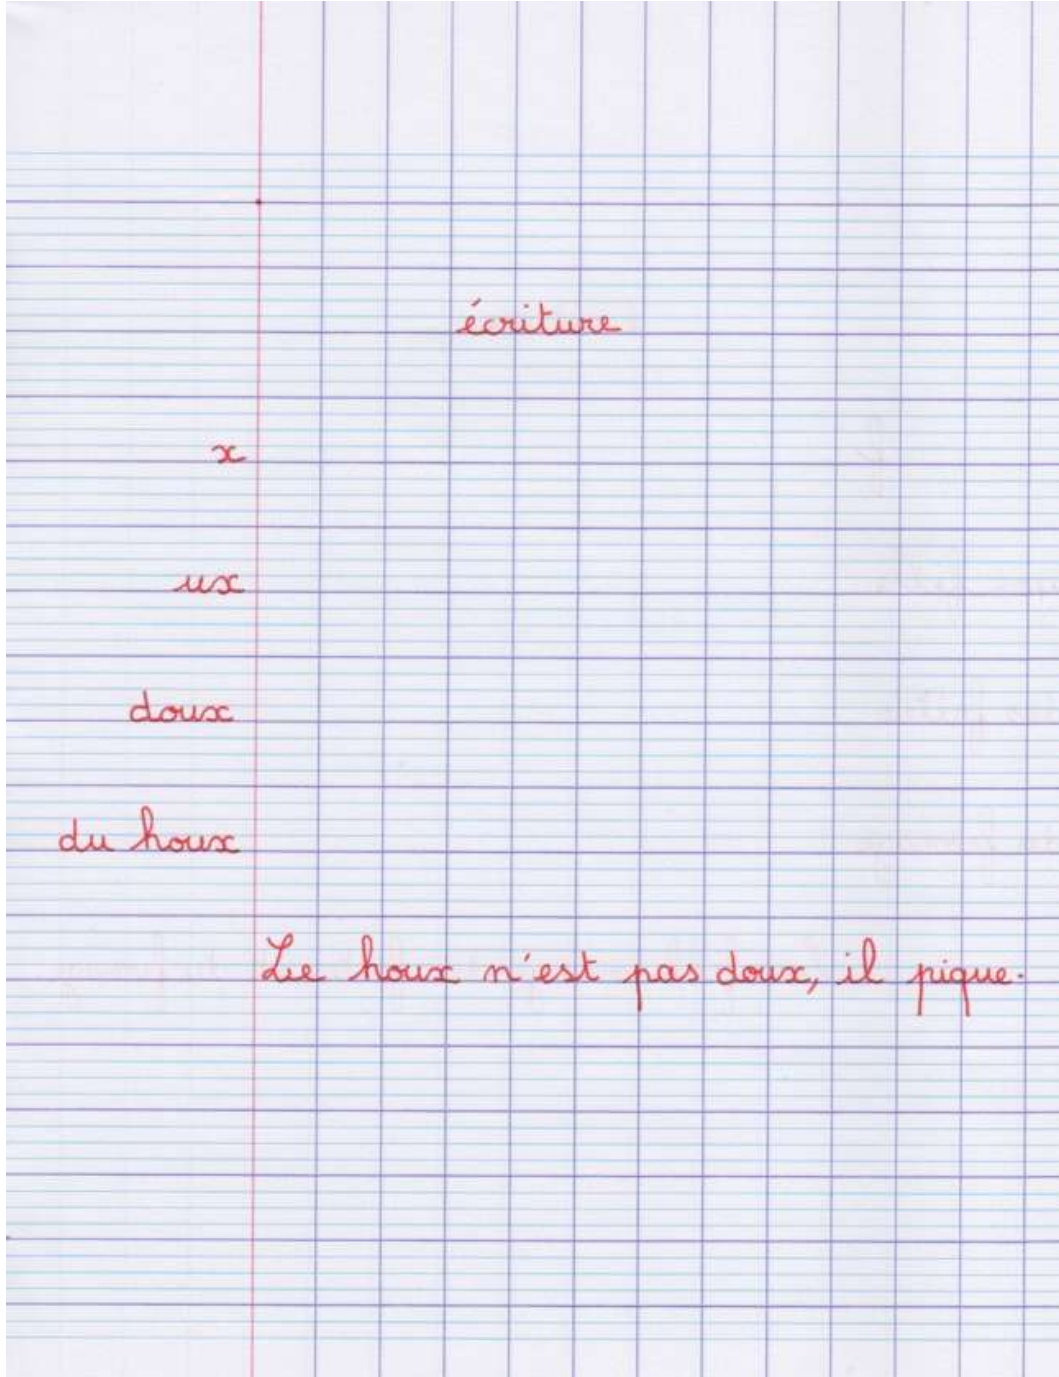 écriture
x
ux
doux
du houx
Le houx n'est pas doux, il pique.